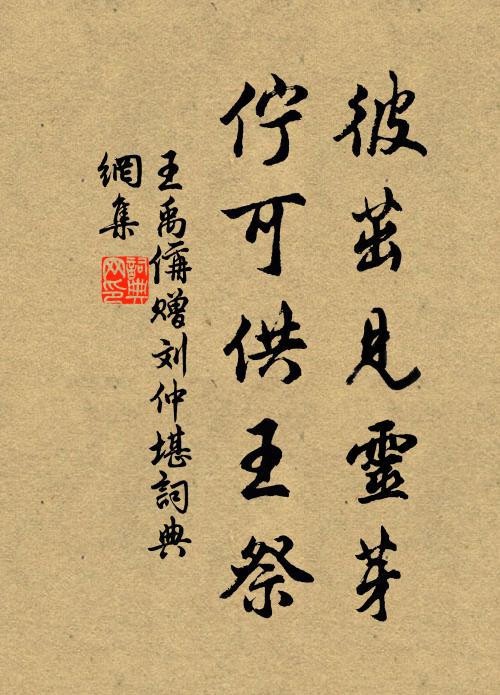 彼茁見靈芽
佇可供王祭
王禹偁贈刘仲堪詞典
網集
詞典網印